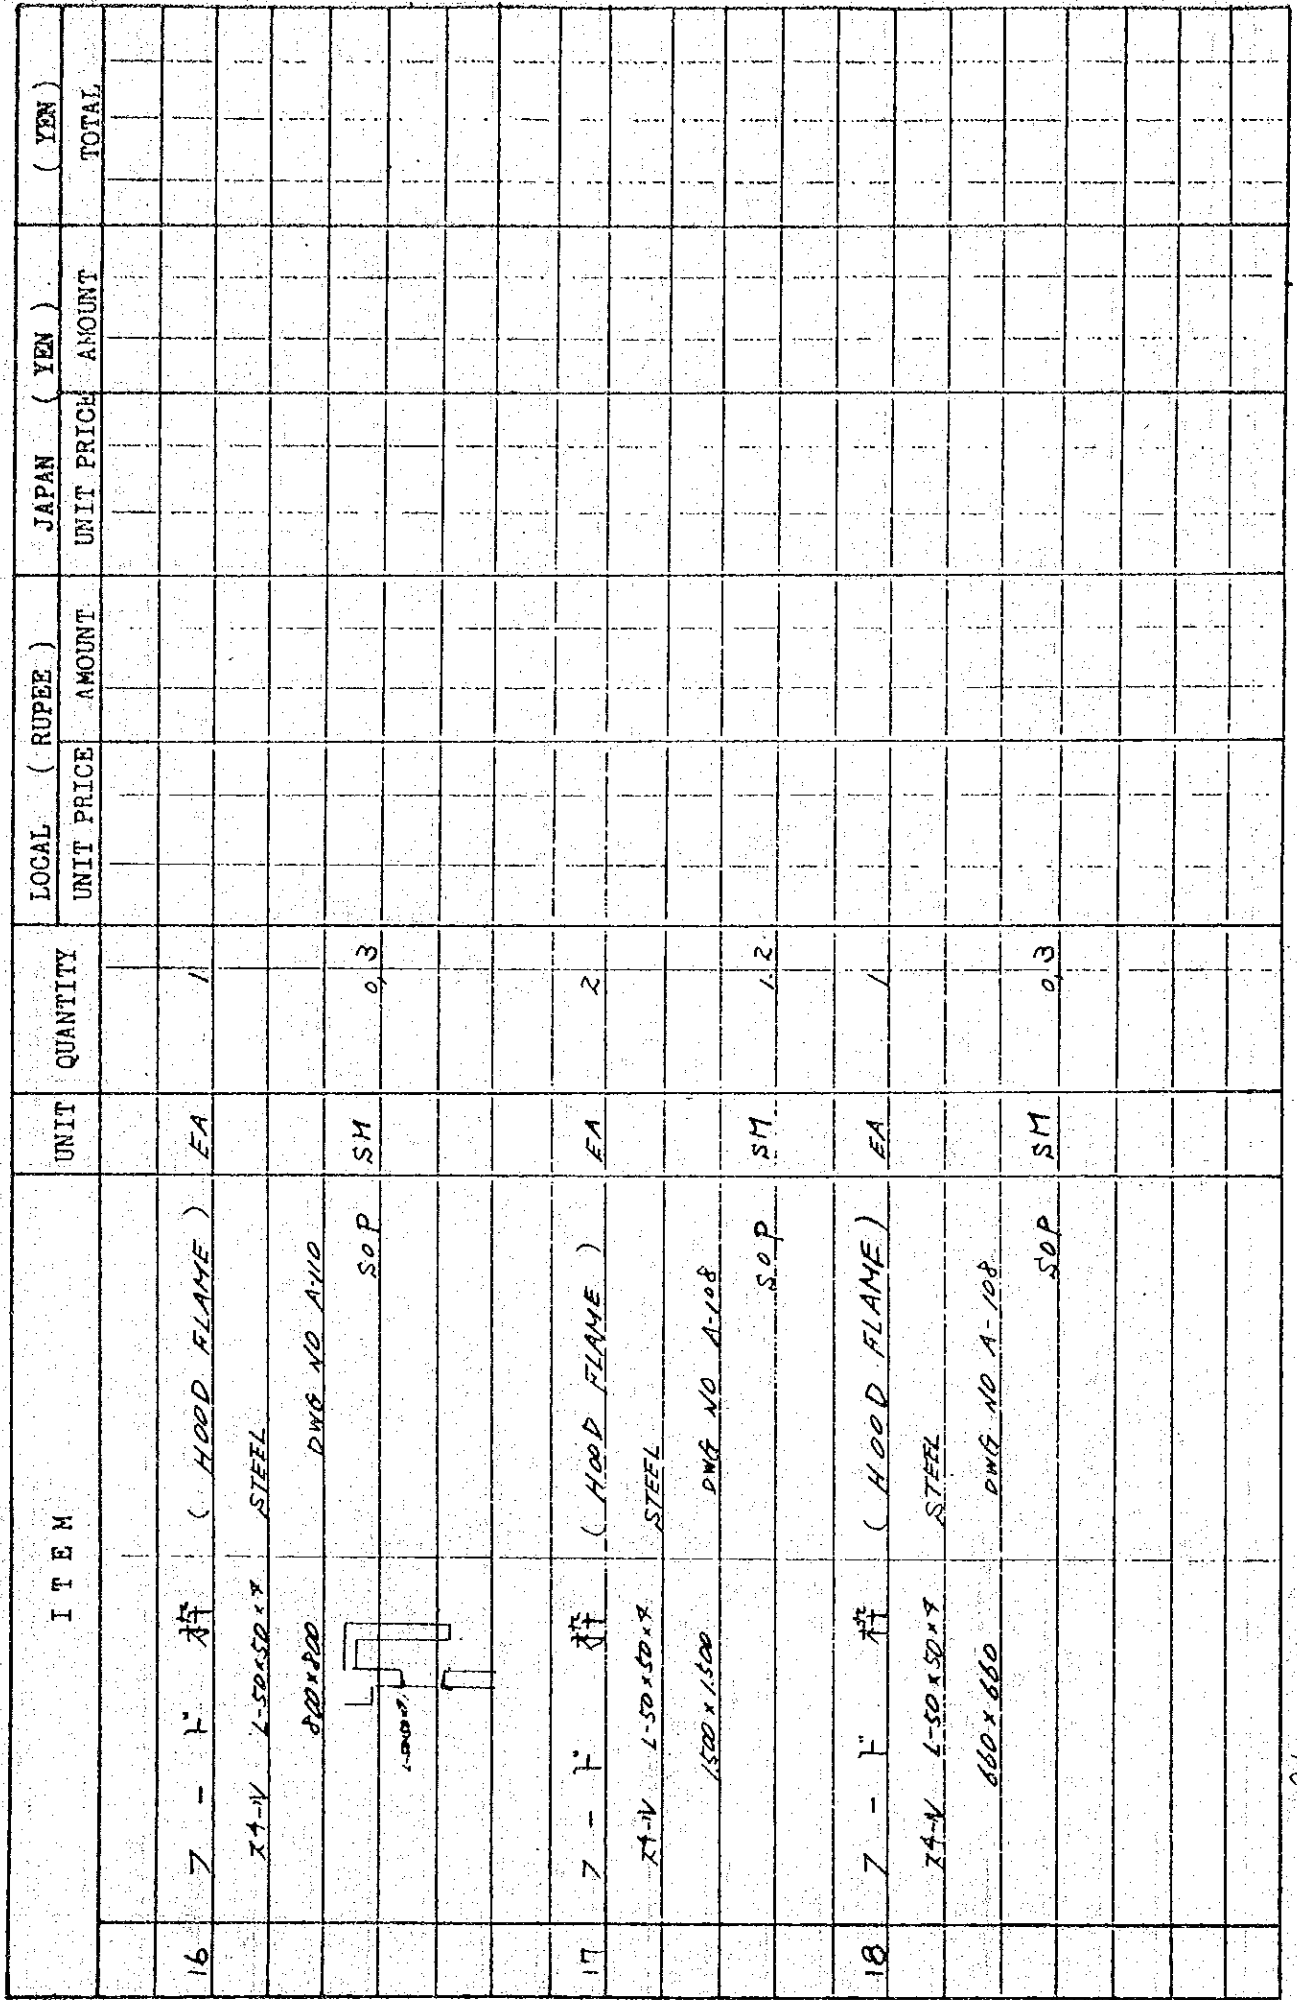 I T E M UNIT QUANTITY LOCAL ( RUPEE ) JAPAN ( YEN ) ( YEN )
UNIT PRICE AMOUNT UNIT PRICE AMOUNT TOTAL
16 フード 枠 ( HOOD FLAME ) EA 1
スチール L-50×50×4 STEEL
800×800 DWG NO A-110
SOP SM 0,3
17 フード 枠 ( HOOD FLAME ) EA 2
スチール L-50×50×4 STEEL
1500×1500 DWG NO A-108
SOP SM 1.2
18 フード 枠 ( HOOD FLAME ) EA 1
スチール L-50×50×4 STEEL
660×660 DWG NO A-108
SOP SM 0,3